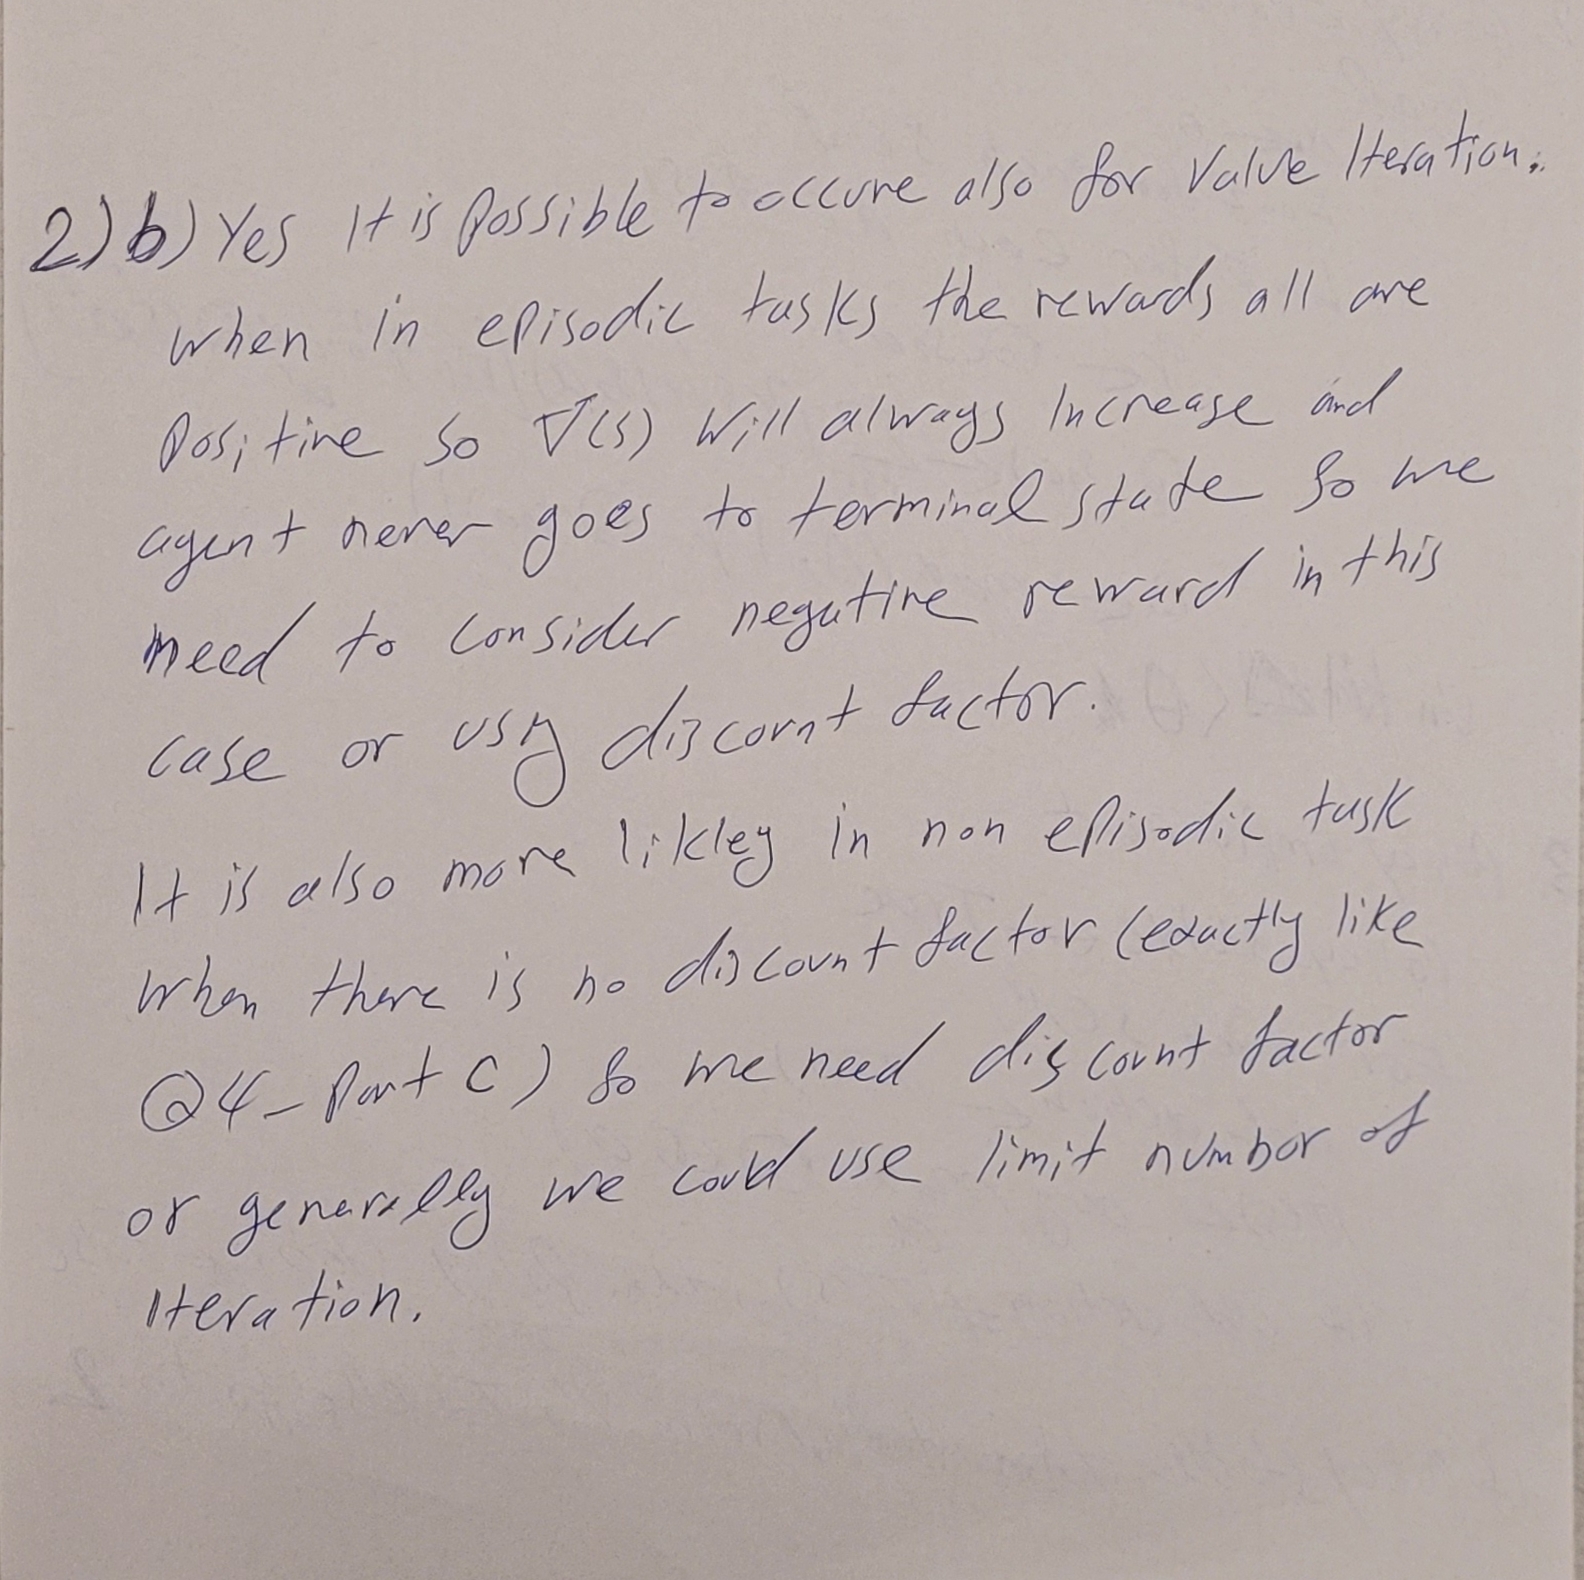 2) b) Yes It is possible to occure also for Value Iteration.
when in episodic tasks the rewards all are
Positive so V(s) will always Increase and
agent never goes to terminal state so we
need to consider negative reward in this
case or using discount factor.
It is also more likley in non episodic task
when there is no discount factor (exactly like
Q4- Part C) so we need discount factor
or generally we could use limit number of
Iteration.